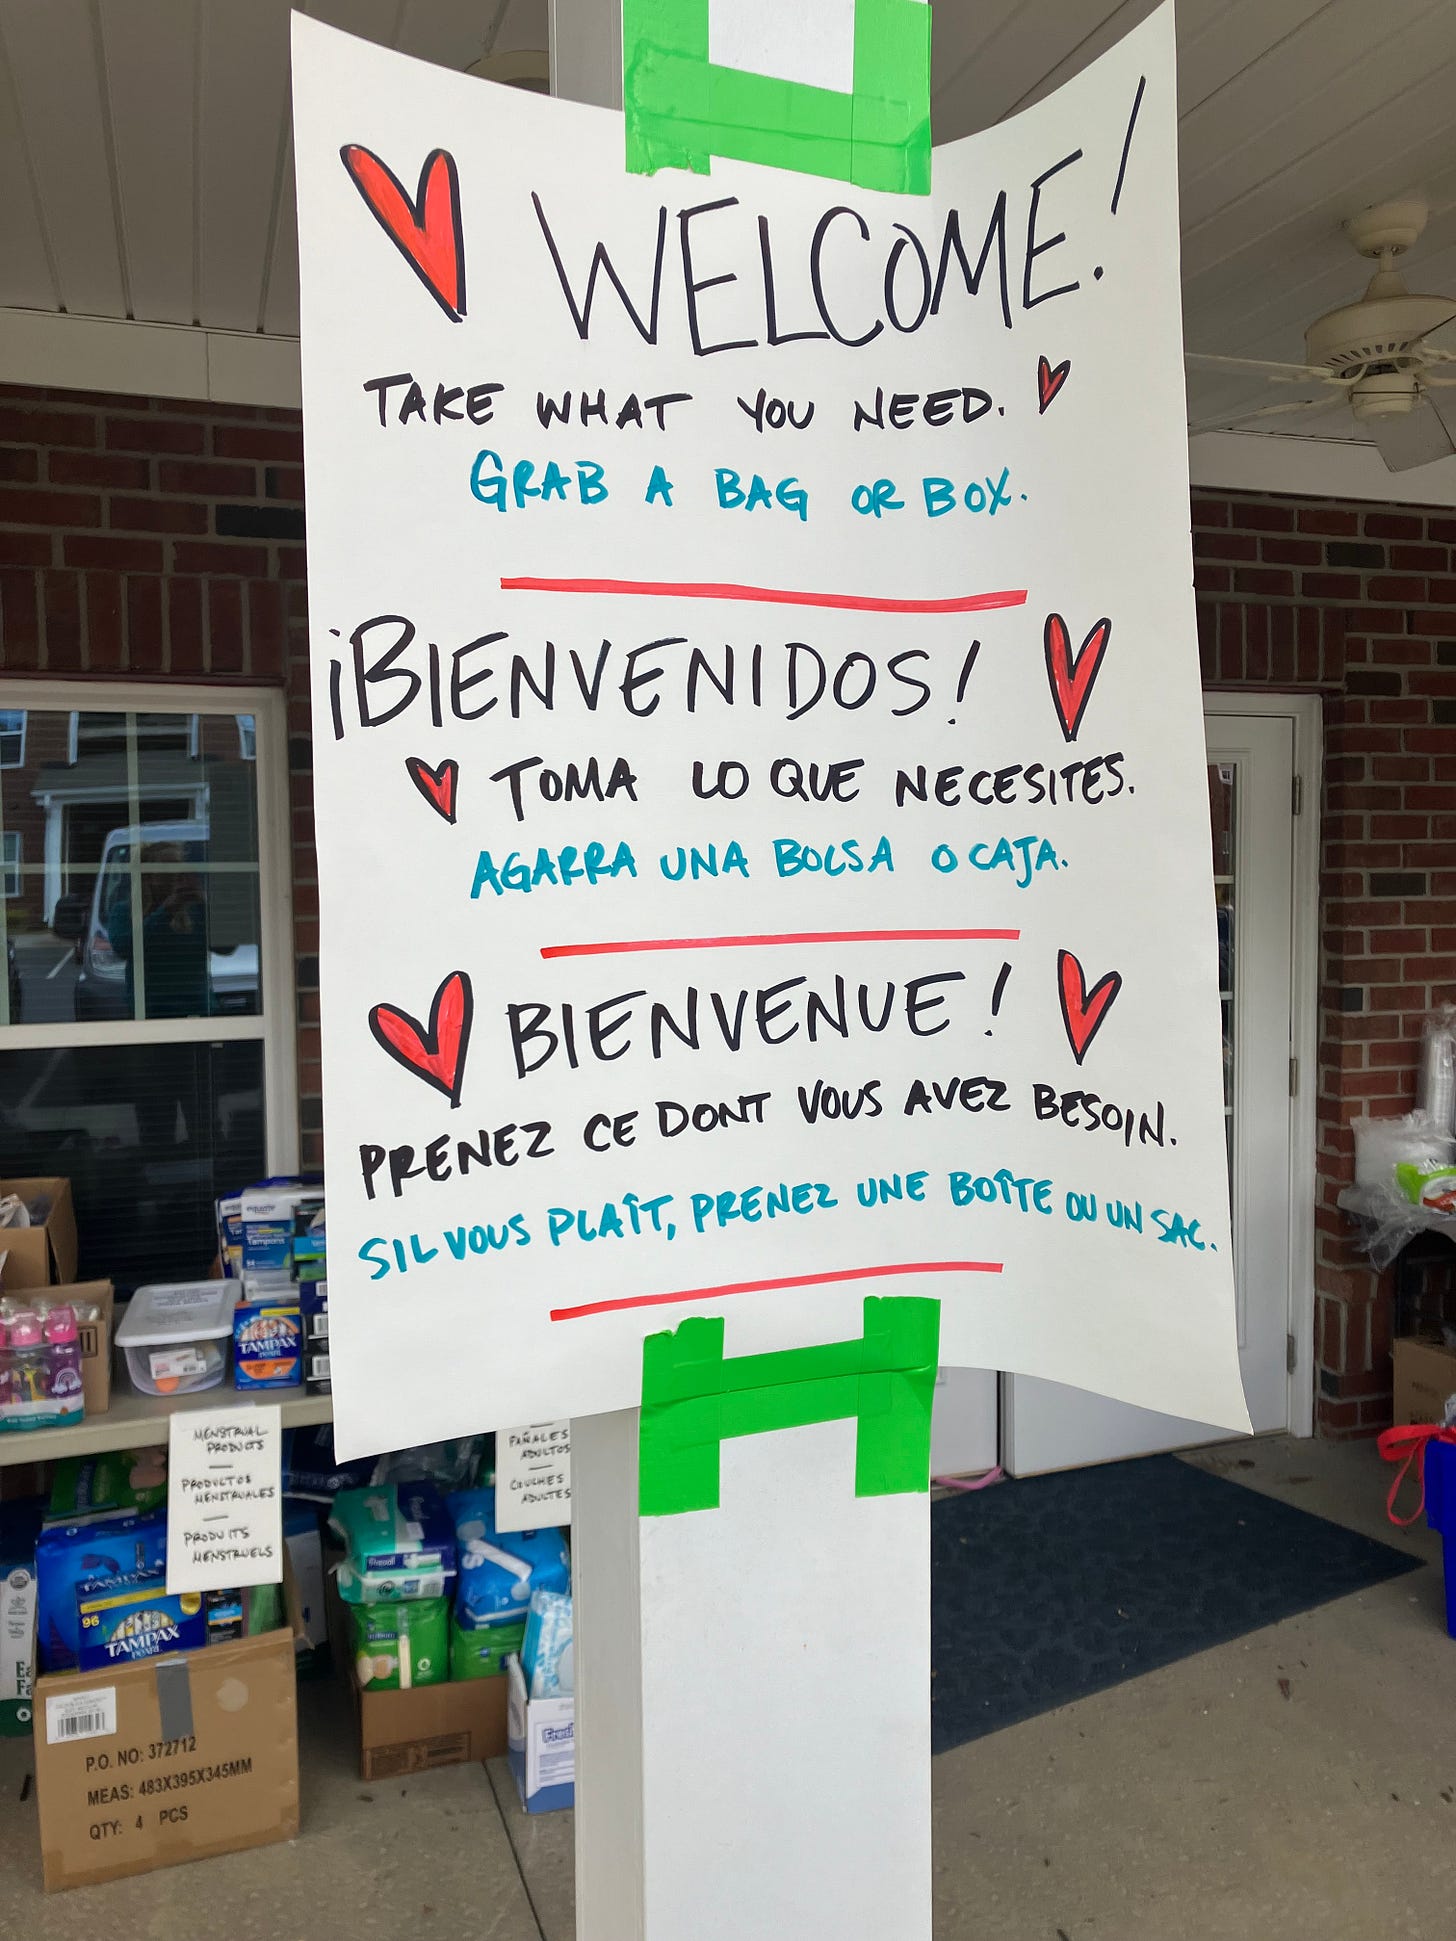 WELCOME!
TAKE WHAT YOU NEED.
GRAB A BAG OR BOX.
¡BIENVENIDOS!
TOMA LO QUE NECESITES.
AGARRA UNA BOLSA O CAJA.
BIENVENUE!
PRENEZ CE DONT VOUS AVEZ BESOIN.
SIL VOUS PLAÎT, PRENEZ UNE BOÎTE OU UN SAC.
equate
Tampons
TAMPAX
PEARL
MENSTRUAL
PRODUCTS
PRODUCTOS
MENSTRUALES
PRODUITS
MENSTRUELS
PAÑALES
ADULTOS
COUCHES
ADULTES
TAMPAX
96
TAMPAX
PEARL
P.O. NO: 372712
MEAS: 483X395X345MM
QTY: 4 PCS